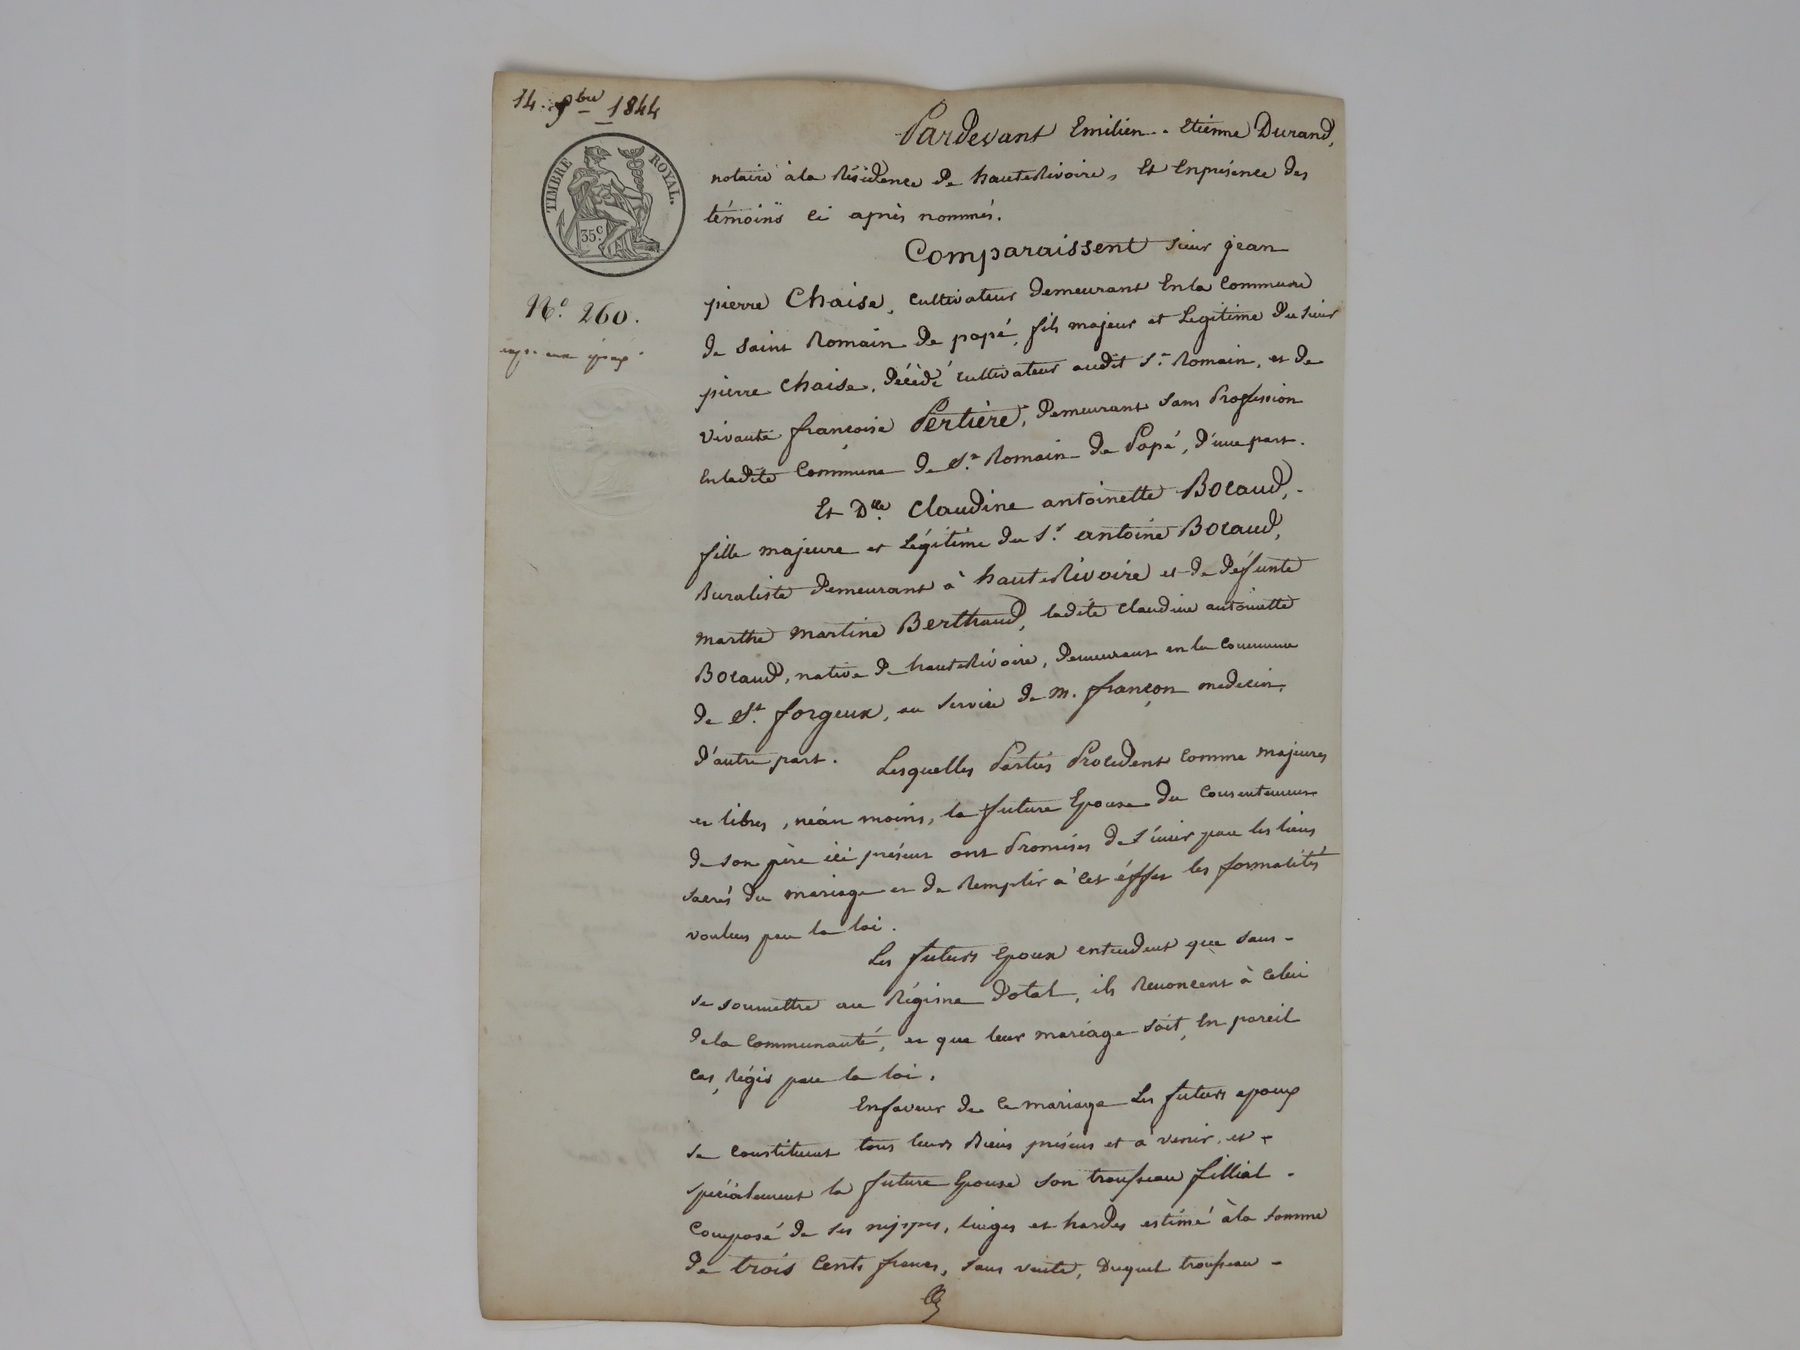 14. 9bre 1844
TIMBRE ROYAL.
35 C.
N.o 260.
Pardevant Emilien. Etienne Durand,
notaire à la Résidence de hauteRivoire, Et Enprésence des
témoins ci après nommés.
Comparaissent sieur jean
pierre Chaise, cultivateur demeurant Enla Commune
de saint Romain de popé, fils majeur et Légitime du sieur
pierre Chaise, décédé cultivateur audit St. Romain, et de
vivante françoise Pertière, demeurant sans Profession
Enladite Commune de St. Romain de Popé, d'une part.
Et Dlle. Claudine antoinette Bocaud,
fille majeure et Légitime du Sr. antoine Bocaud,
Buraliste demeurant à hauteRivoire et de défunte
marthe martine Berthaud, ladite Claudine antoinette
Bocaud, native de hauteRivoire, demeurant en la Commune
de St. forgeux, au service de m. françon medecin,
d'autre part. Lesquelles Parties Procedent comme majeures
et libres, néan moins, la future Epouse du Consentement
de son père ici présent ont Promises de s'unir par les liens
sacrés du mariage et de Remplir à cet éffet les formalités
voulues par la loi.
Les futurs Epoux entendent que sans -
se soumettre au Régime Dotal, ils Renoncent à Celui
dela Communauté, et que leur mariage soit, En pareil
Cas, Régis par la loi.
Enfaveur de ce mariage Les futurs epoux
se constituent tous leurs Biens présens et à venir, et -
spécialement la future Epouse son trousseau fillial -
Composé de ses nippes, linges et hardes estimé àla somme
de trois Cents francs, sans vente, Duquel trousseau -